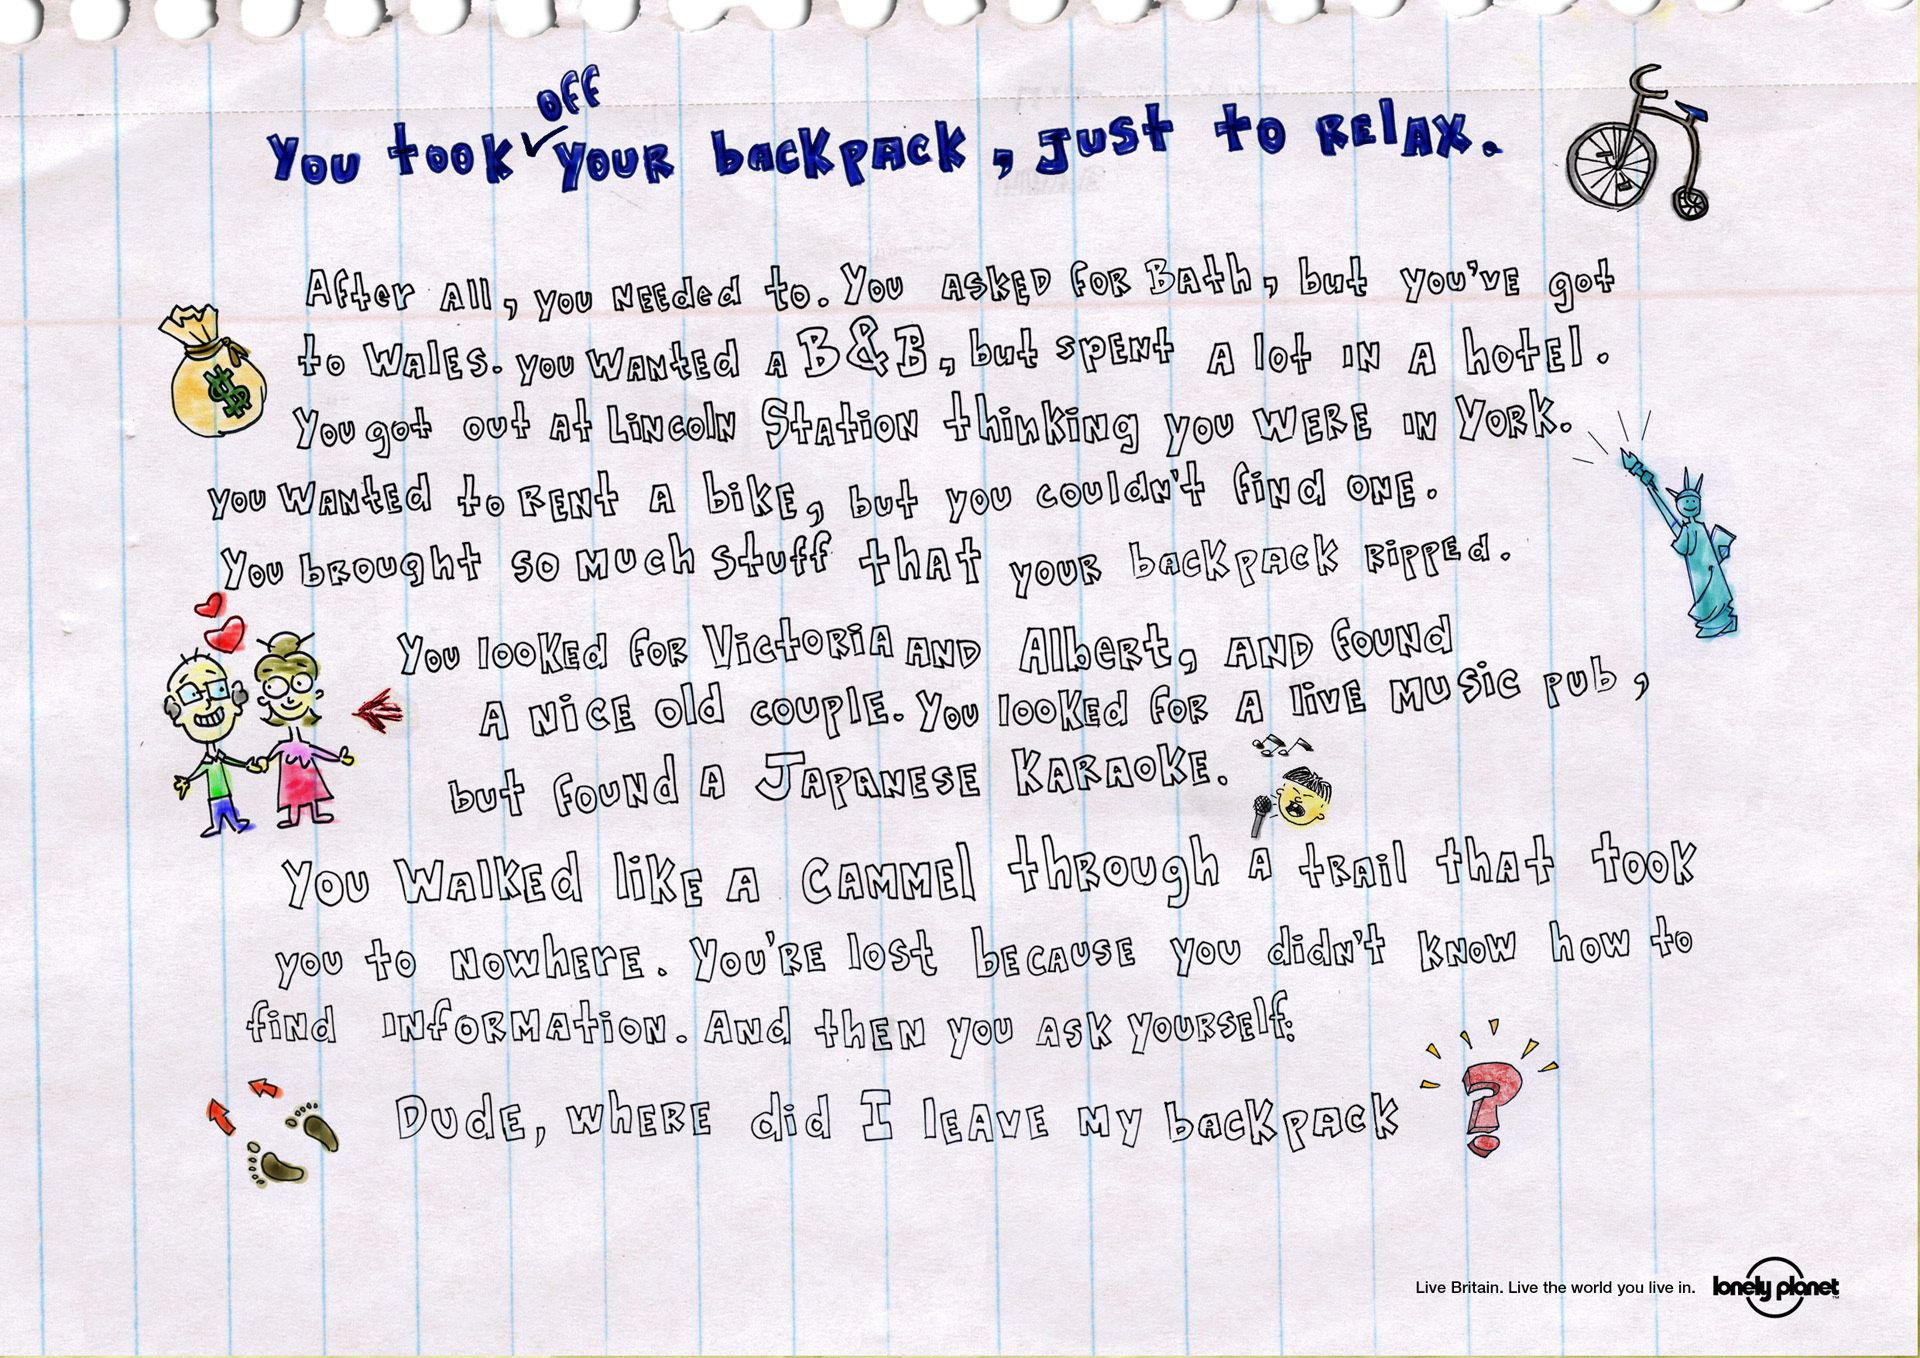 You took off your backpack, just to relax.
After all, you needed to. You asked for Bath, but you've got
to Wales. you wanted a B&B, but spent a lot in a hotel.
You got out at Lincoln Station thinking you were in York.
you wanted to rent a bike, but you couldn't find one.
You brought so much stuff that your backpack ripped.
You looked for Victoria and Albert, and found
a nice old couple. You looked for a live music pub,
but found a Japanese Karaoke.
You walked like a cammel through a trail that took
you to nowhere. You're lost because you didn't know how to
find information. And then you ask yourself:
Dude, where did I leave my backpack ?
Live Britain. Live the world you live in. lonely planet